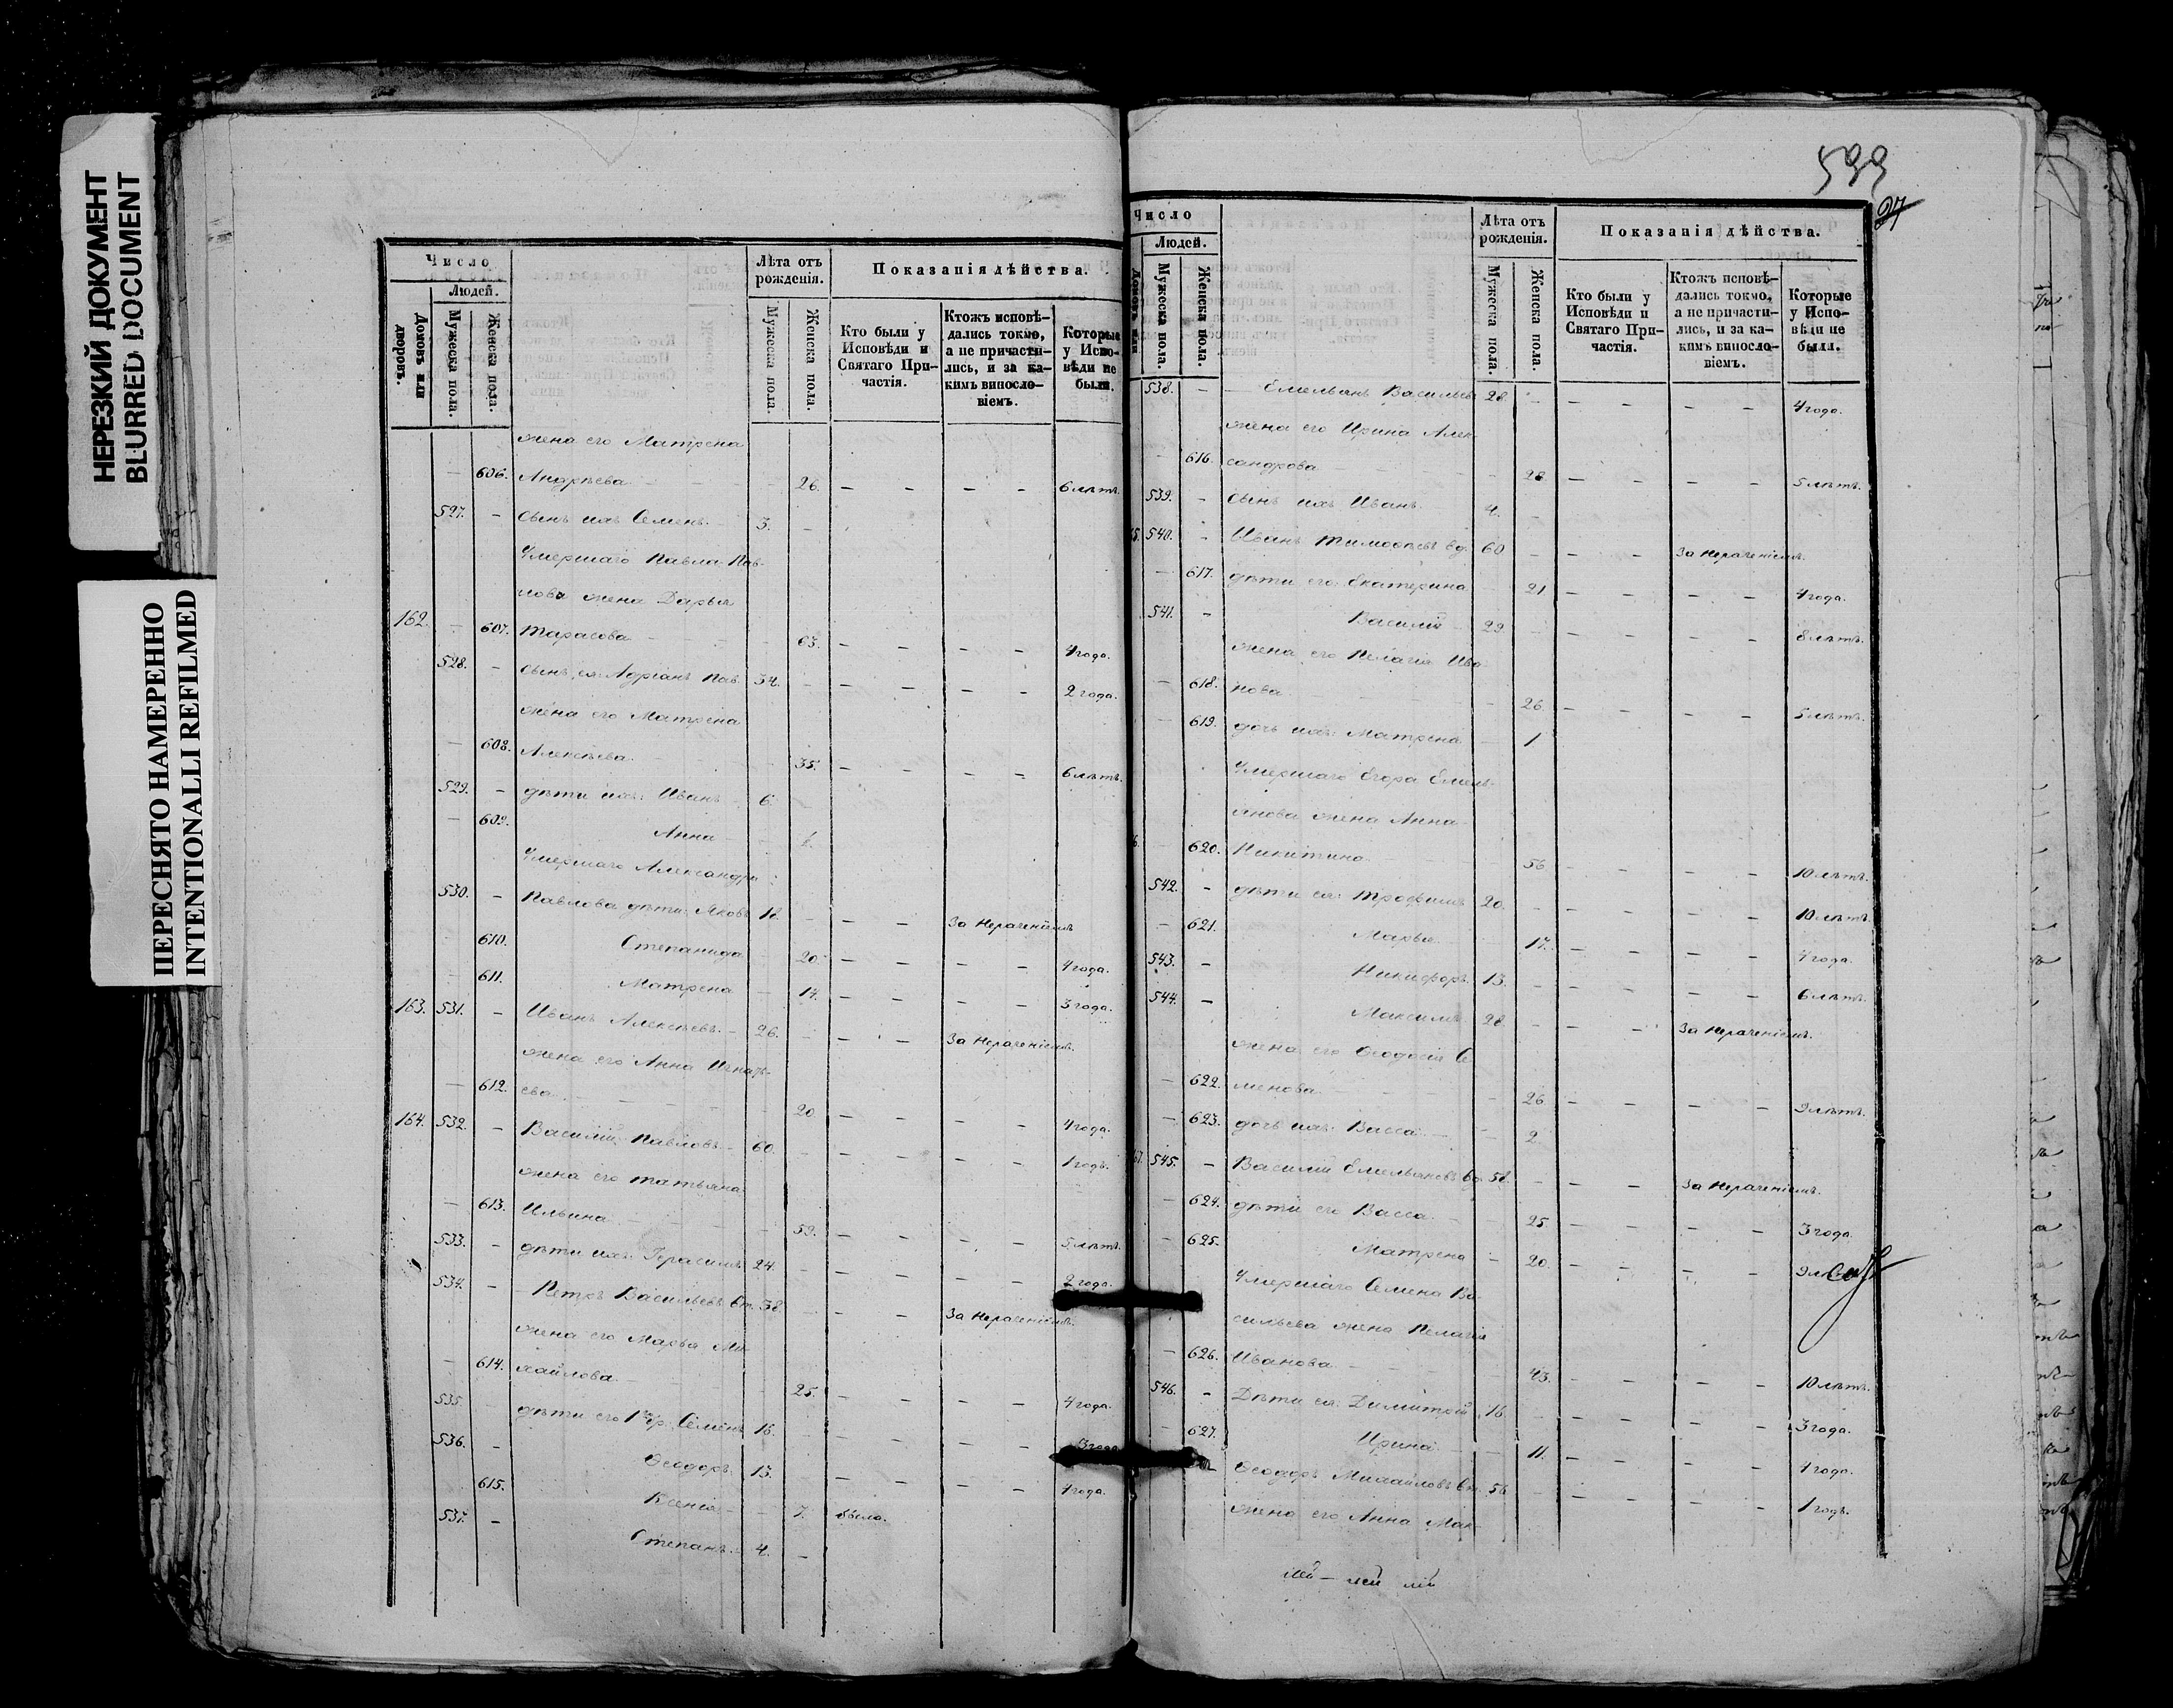 НЕРЕЗКИЙ ДОКУМЕНТ
BLURRED DOCUMENT
ПЕРЕСНЯТО НАМЕРЕННО
INTENTIONALLI REFILMED
Число
Лѣта отъ рожденія.
Показанія дѣйства.
Людей.
Домовъ или дворовъ.
Мужеска пола.
Женска пола.
Мужеска пола.
Женска пола.
Кто были у Исповѣди и Святаго Причастія.
Ктожъ исповѣдались токмо, а не причастились, и за какимъ винословіемъ.
Которые у Исповѣди не были.
жена его Матрена
606. Андрѣева 26. 6 лѣтъ.
527. сынъ ихъ Семенъ 3.
Умершаго Павла Пав-
лова жена Дарья
162. 607. Тарасова 63. 4 года.
528. сынъ ея Адріанъ Пав. 34. 2 года.
жена его Матрена
608. Алексѣева 35. 6 лѣтъ.
529. дѣти ихъ: Иванъ 6.
609. Анна 1.
Умершаго Александра
530. Павлова дѣти: Яковъ 18. За нераченіемъ
610. Степанида 20. 4 года.
611. Матрена 14. 3 года.
163. 531. Иванъ Алексѣевъ 26. За нераченіемъ.
жена его Анна Игнать-
612. ева 20 4 года.
164. 532. Василій Павловъ 60. 1 годъ.
жена его Татьяна
613. Ильина 59. 5 лѣтъ.
533. дѣти ихъ: Герасимъ 24. 2 года.
534. Петръ Васильевъ 38 За нераченіемъ.
жена его Марья Ми-
614. хайлова 25. 4 года.
535. дѣти его Семенъ 16. 3 года
536. Ѳеодоръ 13. 4 года.
615. Ксенія 7. была.
537. Степанъ 4.
599
27
Число
Лѣта отъ рожденія.
Показанія дѣйства.
Людей.
Домовъ или
Мужеска пола.
Женска пола.
Мужеска пола.
Женска пола.
Кто были у Исповѣди и Святаго Причастія.
Ктожъ исповѣдались токмо, а не причастились, и за какимъ винословіемъ.
Которые у Исповѣди не были.
538. Емельянъ Васильевъ 28. 4 года.
жена его Ирина Алек-
616. сандрова 28 5 лѣтъ.
539. сынъ ихъ Иванъ 4.
5. 540. Иванъ Тимоѳеевъ вд. 60 За нераченіемъ.
617. дѣти его: Екатерина 21 4 года.
541. Василій 29. 8 лѣтъ.
жена его Пелагія Ива-
618. нова 26. 5 лѣтъ.
619. дочь ихъ Матрена 1
Умершаго Егора Емель-
янова жена Анна
6. 620. Никитина 56 10 лѣтъ.
542. дѣти ея: Трофимъ 20. 10 лѣтъ.
621. Марья 17. 4 года.
543. Никифоръ 13. 6 лѣтъ.
544. Максимъ 28 За нераченіемъ.
жена его Ѳеодосія Се-
622. менова 26 9 лѣтъ.
623. дочь ихъ Васса 2
67. 545. Василій Емельяновъ вд. 58. За нераченіемъ.
624. дѣти его Васса 25 3 года.
625. Матрена 20.
Умершаго Семена Ва-
сильева жена Пелагія
626. Иванова 43. 10 лѣтъ.
546. Дѣти ея: Димитрій 16. 3 года.
627. Ирина 11. 4 года.
Ѳеодоръ Михайловъ 56 1 годъ.
жена его Анна Мак-